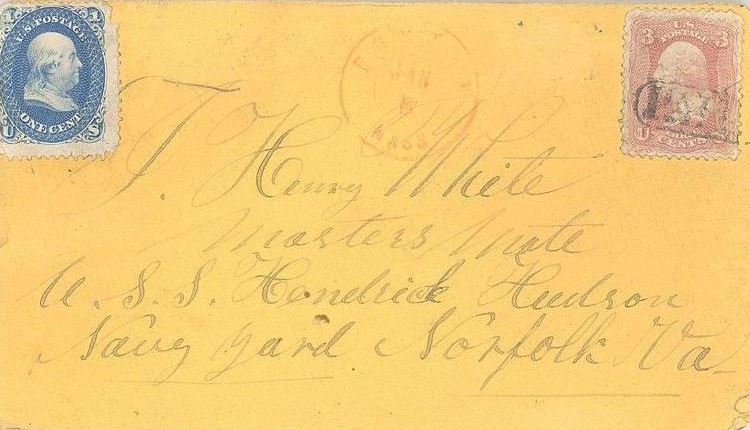 U.S. POSTAGE
1 1
ONE CENT
U S
JAN
MASS
U.S.
3 3
U
CENTS
PAID
T. Henry White
Masters Mate
U. S. S. Hendrick Hudson
Navy Yard Norfolk Va